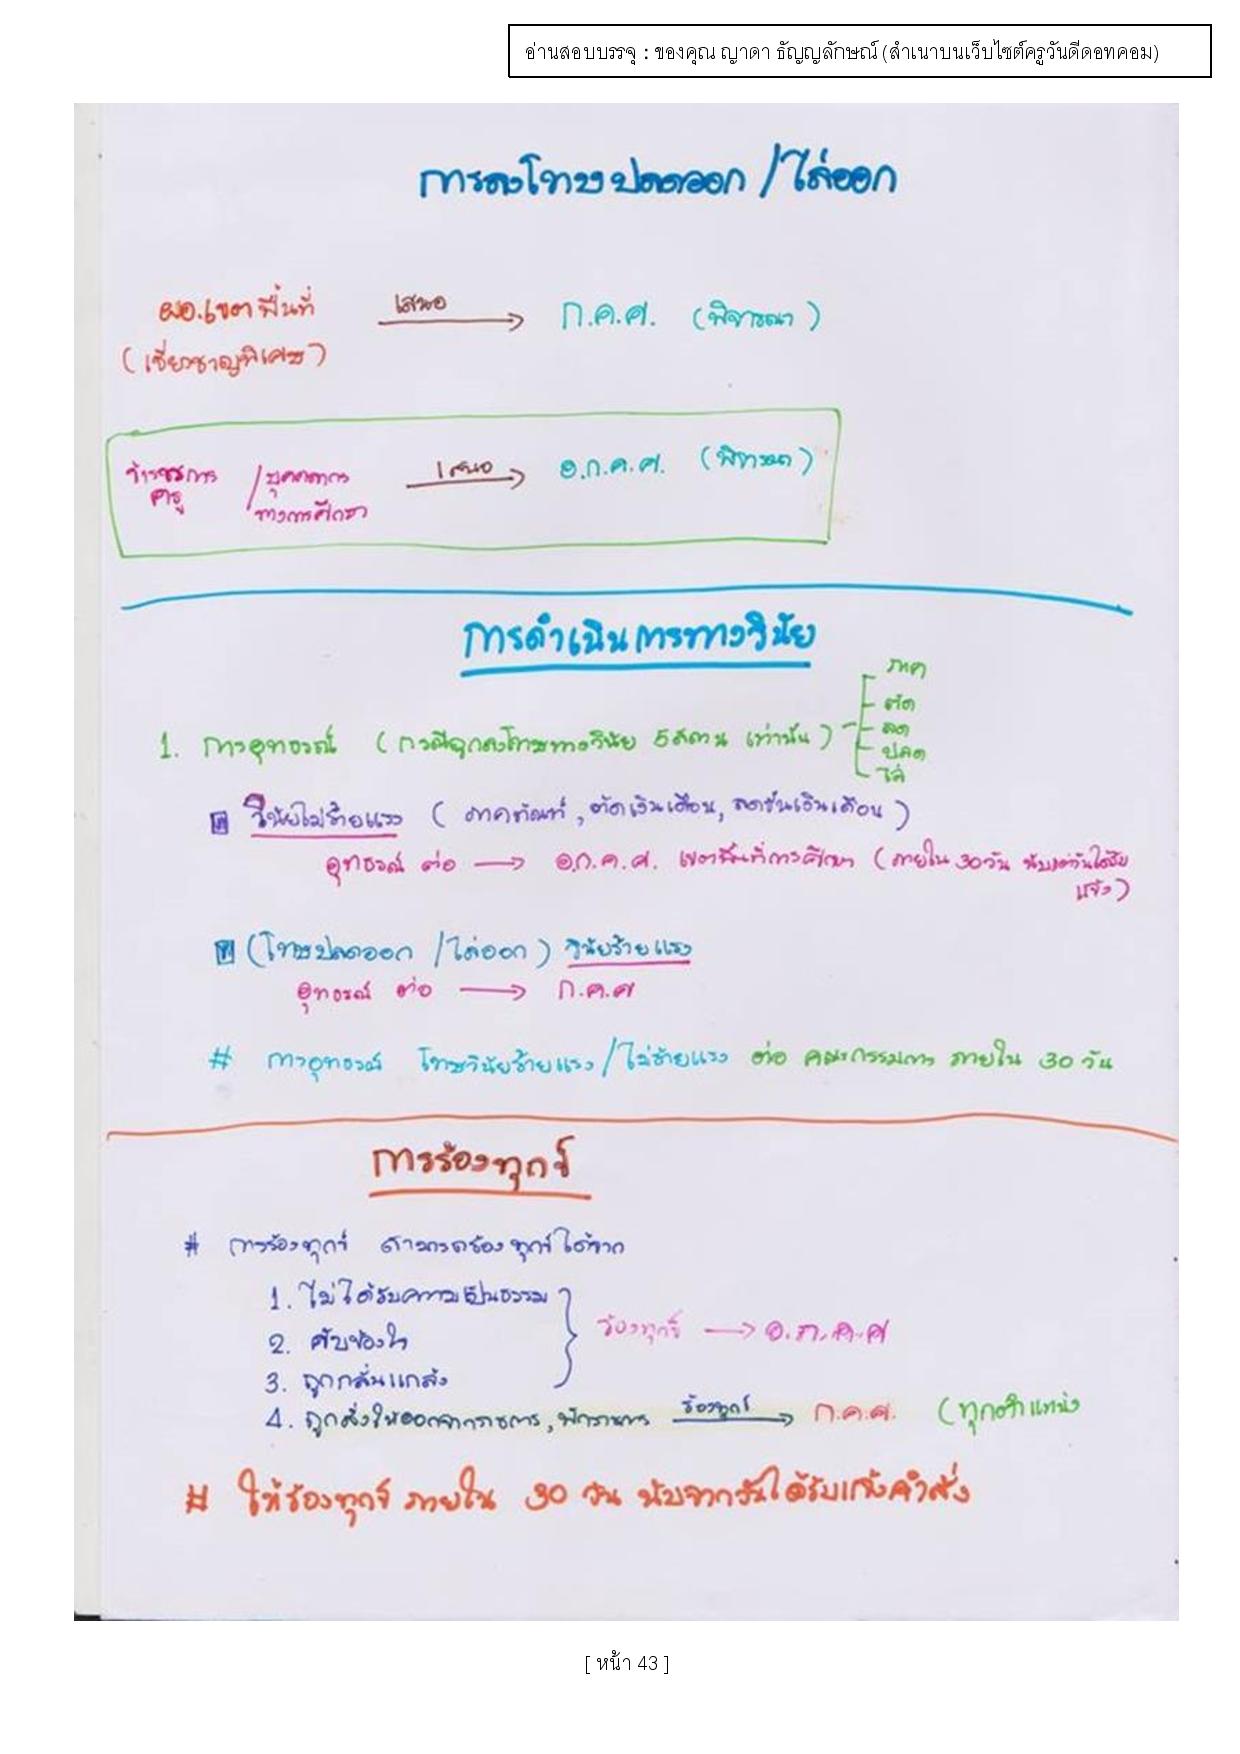 อ่านสอบบรรจุ : ของคุณ ญาดา ธัญญลักษณ์ (สำเนาบนเว็บไซต์ครูวันดีดอทคอม)
การลงโทษปลดออก / ไล่ออก
ผอ.เขตพื้นที่ เสนอ → ก.ค.ศ. (พิจารณา)
(เชี่ยวชาญพิเศษ)
ข้าราชการครู / บุคลากรทางการศึกษา เสนอ → อ.ก.ค.ศ. (พิจารณา)
การดำเนินการทางวินัย
1. การอุทธรณ์ (กรณีถูกลงโทษทางวินัย 5 สถาน เท่านั้น)
ภาค
ตัด
ลด
ปลด
ไล่
วินัยไม่ร้ายแรง (ภาคทัณฑ์, ตัดเงินเดือน, ลดขั้นเงินเดือน)
อุทธรณ์ ต่อ → อ.ก.ค.ศ. เขตพื้นที่การศึกษา (ภายใน 30 วัน นับแต่วันได้รับ
แจ้ง)
(โทษปลดออก / ไล่ออก) วินัยร้ายแรง
อุทธรณ์ ต่อ → ก.ค.ศ
# การอุทธรณ์ โทษวินัยร้ายแรง / ไม่ร้ายแรง ต่อ คณะกรรมการ ภายใน 30 วัน
การร้องทุกข์
# การร้องทุกข์ สามารถร้องทุกข์ได้จาก
1. ไม่ได้รับความเป็นธรรม
2. คับข้องใจ
ร้องทุกข์ → อ.ก.ค.ศ
3. ถูกกลั่นแกล้ง
4. ถูกสั่งให้ออกจากราชการ, พักราชการ ร้องทุกข์ → ก.ค.ศ. (ทุกตำแหน่ง
# ให้ร้องทุกข์ ภายใน 30 วัน นับจากวันได้รับแจ้งคำสั่ง
[ หน้า 43 ]